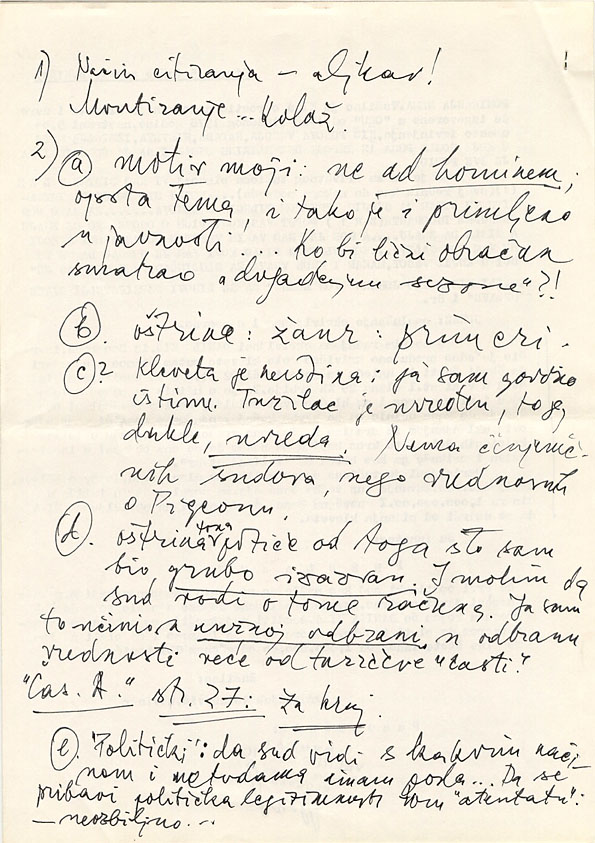 1) Način citiranja – aljkav!
Montiranje... Kolaž.
2) (a) motiv moji: ne ad hominem,
opšta tema, i tako je i primljeno
u javnosti... Ko bi lični obračun
smatrao "događajem sezone"?!
(b). oštrina: žanr, primeri.
(c)? kleveta je neistina: ja sam govorio
istinu. Tužilac je uvređen, to je,
dakle, uvreda. Nema činjenič-
nih sudova, nego vrednovnih
o
(d). oštrina tona potiče od toga što sam
bio grubo izazvan. I molim da
sud vodi o tome računa. Ja sam
to učinio u nužnoj odbrani, u odbranu
vrednosti veće od tužiočeve "časti".
"Čas. A." str. 27: Za kraj.
(e). 'Politički': da sud vidi s kakvim nači-
nom i metodama imam posla... Da se
pribavi politička legitimnost tom "atentatu":
– neozbiljno...